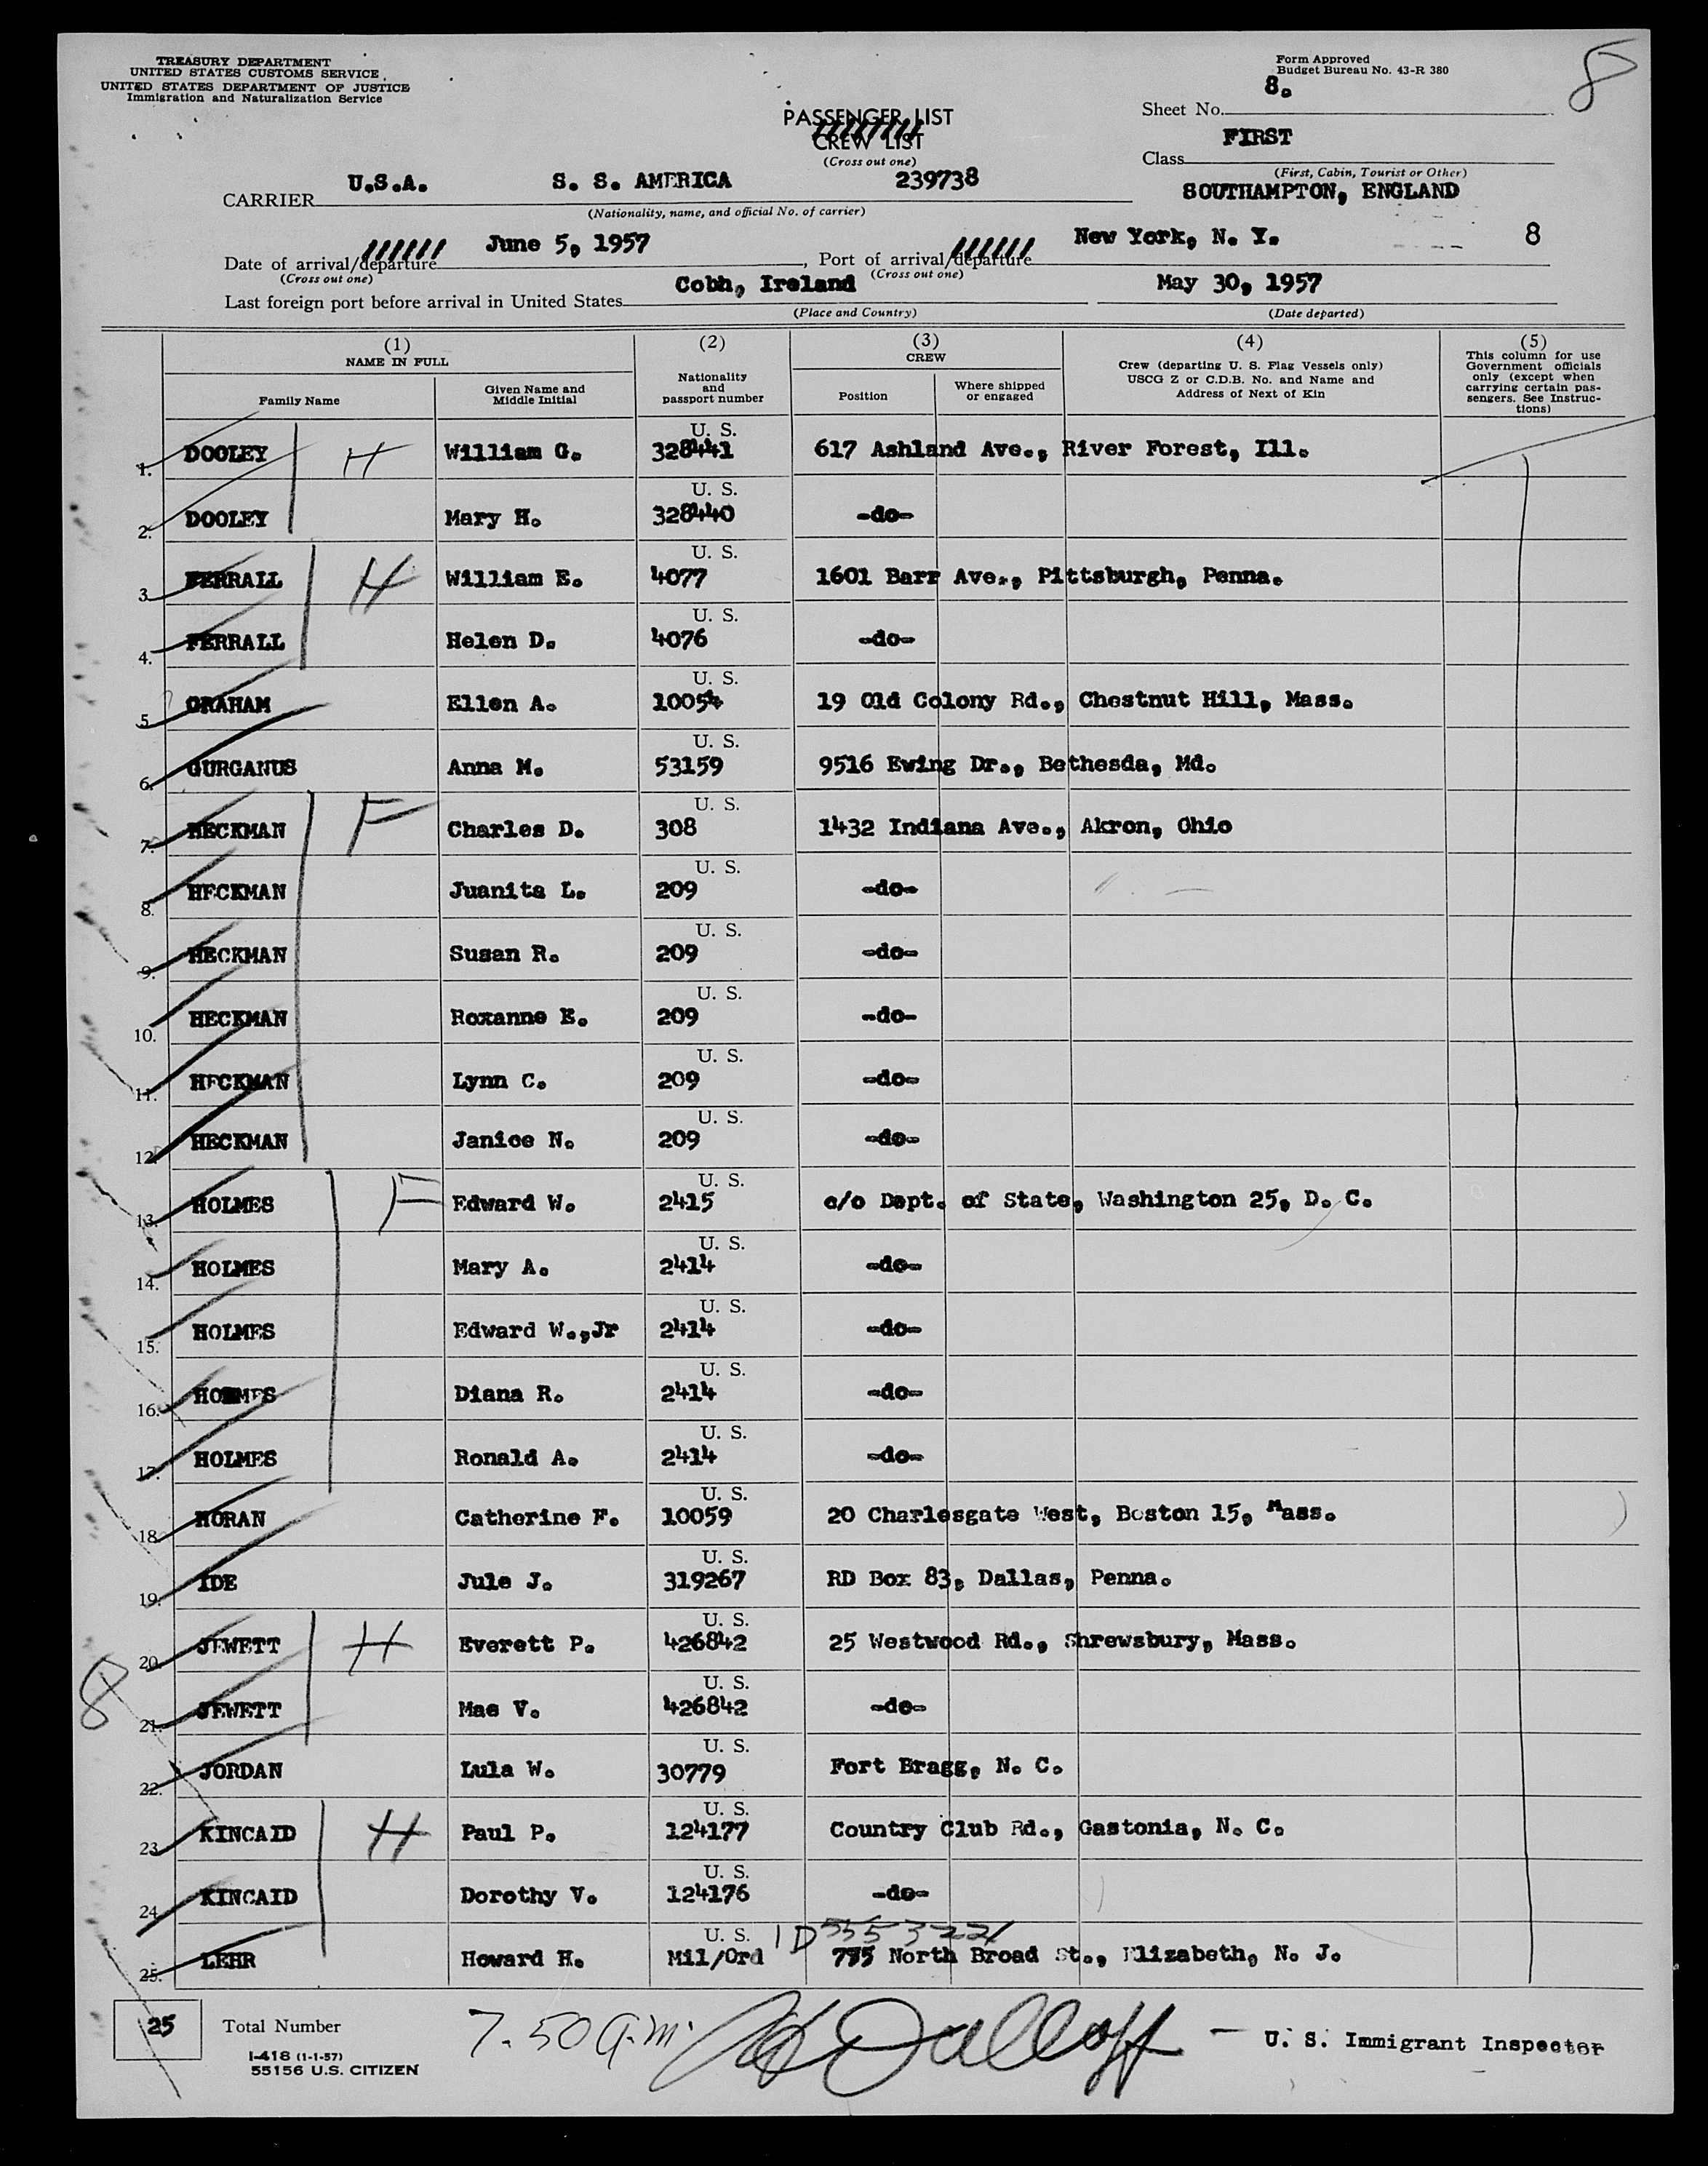 TREASURY DEPARTMENT
UNITED STATES CUSTOMS SERVICE
UNITED STATES DEPARTMENT OF JUSTICE
Immigration and Naturalization Service
Form Approved
Budget Bureau No. 43-R 380
8
PASSENGER LIST
CREW LIST
(Cross out one)
Sheet No. 8.
Class FIRST
(First, Cabin, Tourist or Other)
CARRIER U.S.A. S. S. AMERICA 239738
(Nationality, name, and official No. of carrier)
SOUTHAMPTON, ENGLAND
Date of arrival/departure June 5, 1957, Port of arrival/departure New York, N. Y. 8
(Cross out one) (Cross out one)
Last foreign port before arrival in United States Cobh, Ireland May 30, 1957
(Place and Country) (Date departed)
(1) NAME IN FULL
Family Name
Given Name and Middle Initial
(2)
Nationality and passport number
(3)
CREW
Position
Where shipped or engaged
(4)
Crew (departing U. S. Flag Vessels only)
USCG Z or C.D.B. No. and Name and
Address of Next of Kin
(5)
This column for use
Government officials
only (except when
carrying certain pas-
sengers. See Instruc-
tions)
1. DOOLEY H William G. U. S. 328441 617 Ashland Ave., River Forest, Ill.
2. DOOLEY Mary H. U. S. 328440 -do-
3. FERRALL H William E. U. S. 4077 1601 Barr Ave., Pittsburgh, Penna.
4. FERRALL Helen D. U. S. 4076 -do-
5. GRAHAM Ellen A. U. S. 10054 19 Old Colony Rd., Chestnut Hill, Mass.
6. GURGANUS Anna M. U. S. 53159 9516 Ewing Dr., Bethesda, Md.
7. HECKMAN F Charles D. U. S. 308 1432 Indiana Ave., Akron, Ohio
8. HECKMAN Juanita L. U. S. 209 -do-
9. HECKMAN Susan R. U. S. 209 -do-
10. HECKMAN Roxanne E. U. S. 209 -do-
11. HECKMAN Lynn C. U. S. 209 -do-
12. HECKMAN Janice N. U. S. 209 -do-
13. HOLMES F Edward W. U. S. 2415 c/o Dept. of State, Washington 25, D. C.
14. HOLMES Mary A. U. S. 2414 -do-
15. HOLMES Edward W.,Jr U. S. 2414 -do-
16. HOLMES Diana R. U. S. 2414 -do-
17. HOLMES Ronald A. U. S. 2414 -do-
18. HORAN Catherine F. U. S. 10059 20 Charlesgate West, Boston 15, Mass.
19. IDE Jule J. U. S. 319267 RD Box 83, Dallas, Penna.
20. JEWETT H Everett P. U. S. 426842 25 Westwood Rd., Shrewsbury, Mass.
8
21. JEWETT Mae V. U. S. 426842 -do-
22. JORDAN Lula W. U. S. 30779 Fort Bragg, N. C.
23. KINCAID H Paul P. U. S. 124177 Country Club Rd., Gastonia, N. C.
24. KINCAID Dorothy V. U. S. 124176 -do-
25. LEHR Howard H. U. S. Mil/Ord North Broad St., Elizabeth, N. J.
25 Total Number
I-418 (1-1-57)
55156 U.S. CITIZEN
7.50 a.m.
U. S. Immigrant Inspector